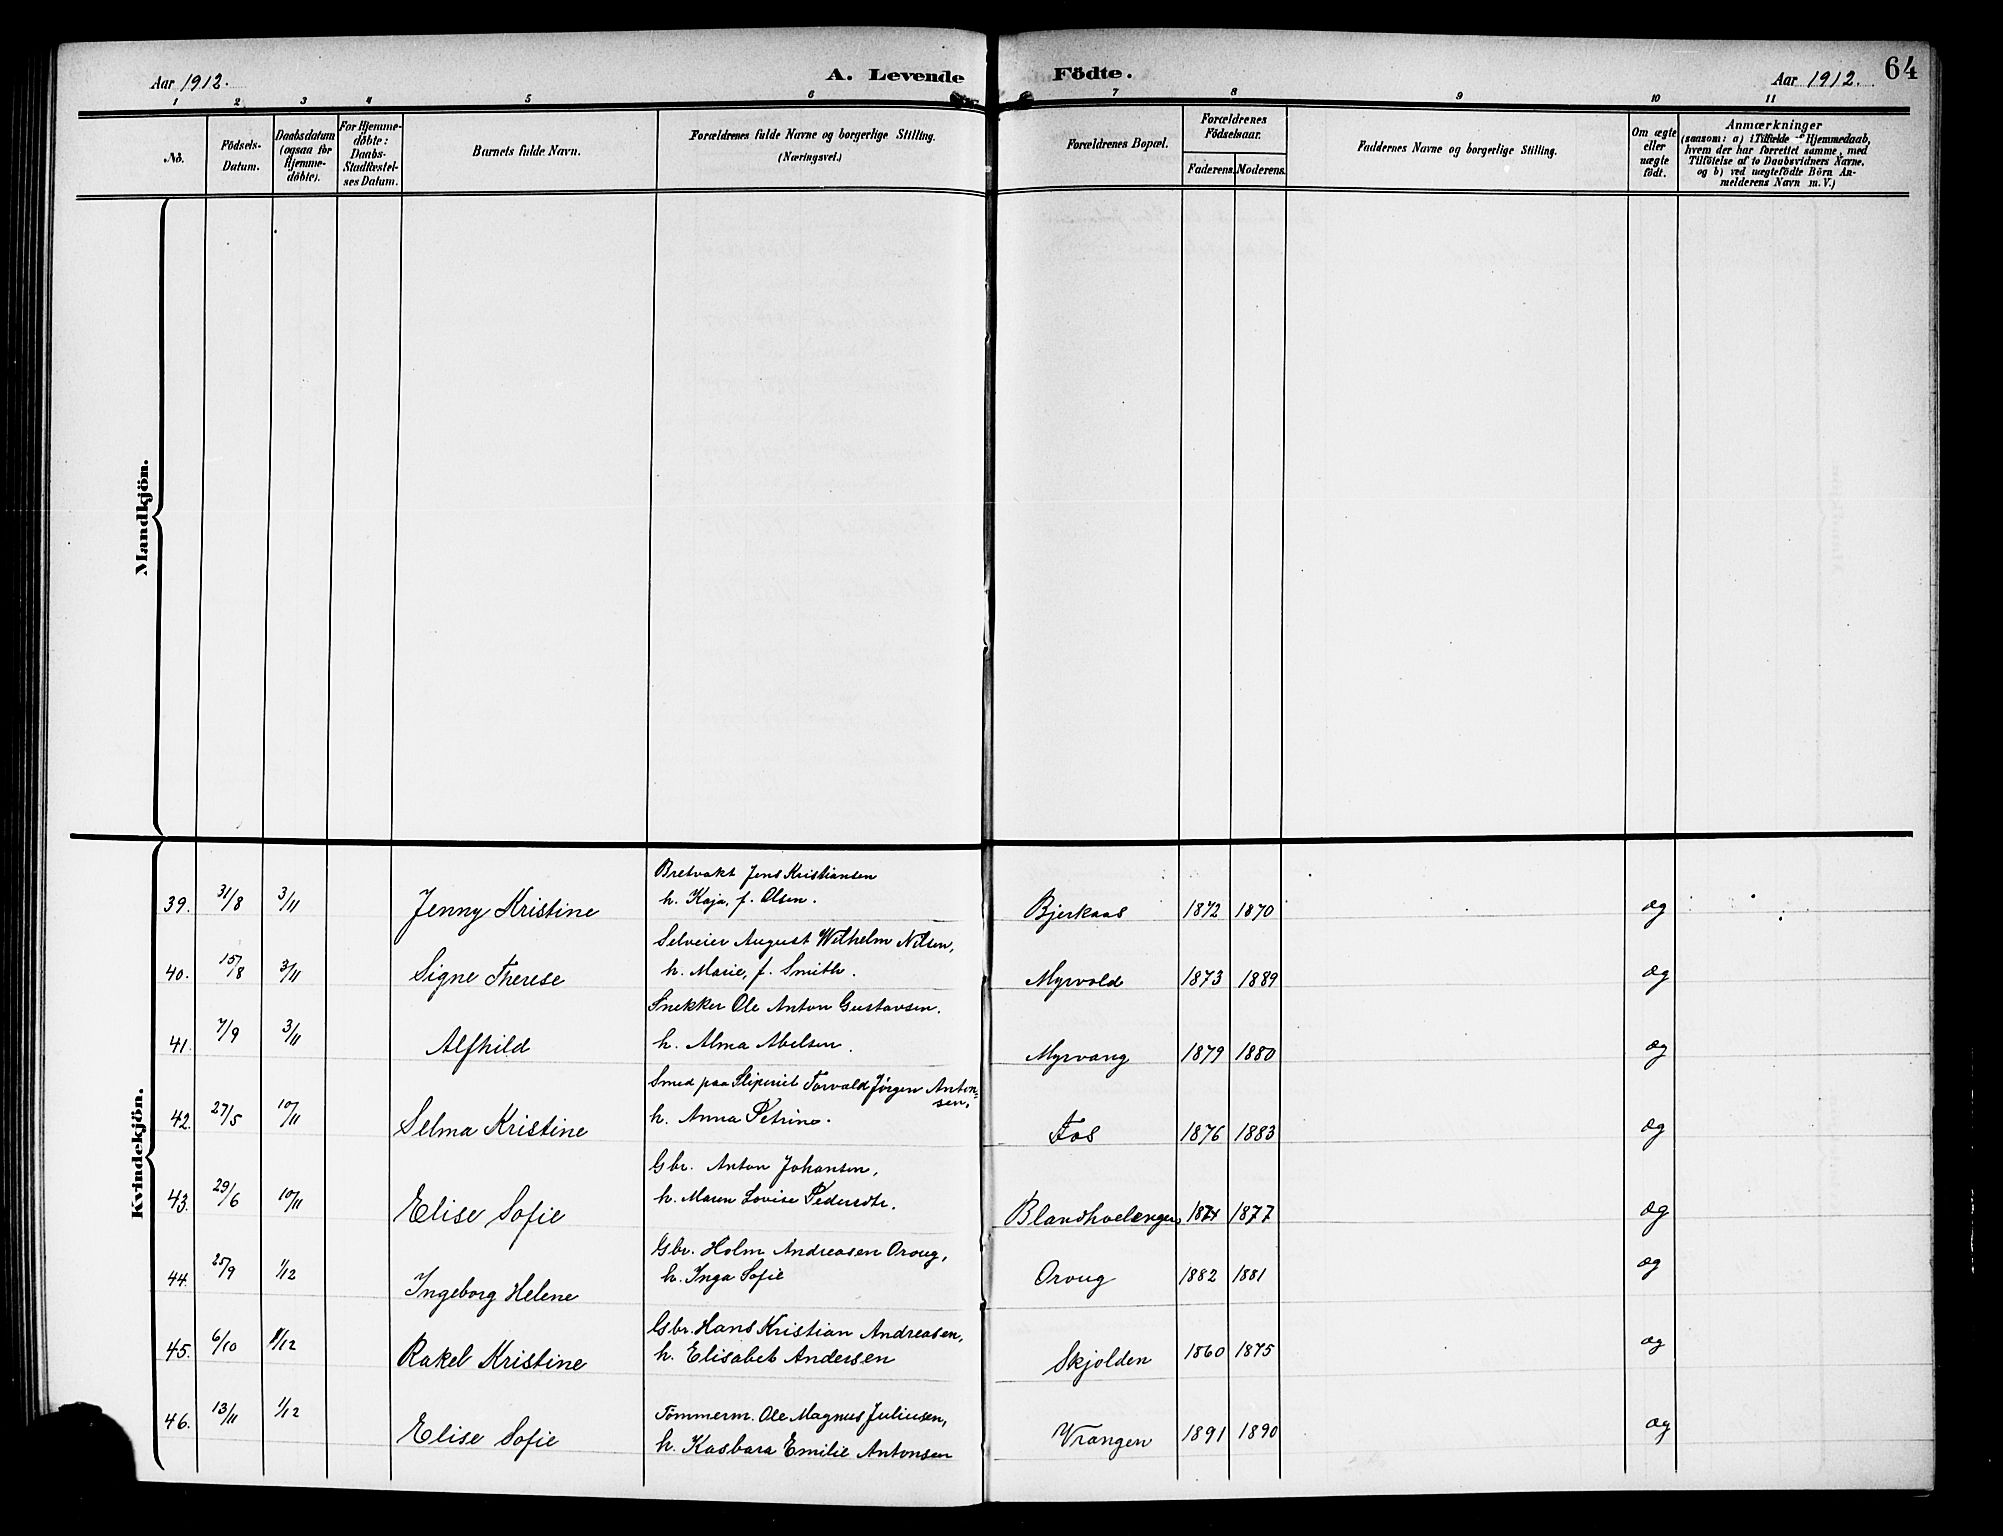 Aar 1912.
A. Levende Födte.
Aar 1912.
64
1 2 3 4 5 6 7 8 9 10 11
No.
Födsels-Datum.
Daabsdatum (ogsaa for Hjemme-döbte).
For Hjemme-döbte: Daabs-Stadfæstel-ses Datum.
Barnets fulde Navn.
Forældrenes fulde Navne og borgerlige Stilling.
(Næringsvei.)
Forældrenes Bopæl.
Forældrenes Födselsaar.
Faderens. Moderens.
Faddernes Navne og borgerlige Stilling.
Om ægte eller uægte födt.
Anmærkninger
(saasom: a) i Tilfælde af Hjemmedaab,
hvem der har forrettet samme, med
Tilföielse af to Daabsvidners Navne.
og b) ved uægtefödte Börn An-
melderens Navn m. V.)
Mandkjön.
Kvindekjön.
Bretvakt Jens Kristiansen
39. 31/8 3/11 Jenny Kristine h. Kaja, f. Olsen. Bjerkaas 1872 1870 æg
Selveier August Wilhelm Nilsen,
40. 15/8 3/11 Signe Therese h. Marie, f. Smith. Myrvold 1873 1889 æg
Snekker Ole Anton Gustavsen.
41. 7/9 3/11 Alfhild h. Alma Abelsen. Myrvang 1879 1880 æg
Smed paa Sliperiet Torvald Jørgen Anton-
sen,
42. 27/5 10/11 Selma Kristine h. Anna Petrine. Fos 1876 1883 æg
Gbr. Anton Johansen,
43. 29/6 10/11 Elise Sofie h. Maren Lovise Pedersdtr. 1877 æg
Gbr. Holm Andreasen Oroug,
44. 25/9 1/12 Ingeborg Helene h. Inga Sofie Oroug 1882 1881 æg
Gbr. Hans Kristian Andreasen,
45. 6/10 1/12 Rakel Kristine h. Elisabet Andersen Skjolden 1860 1875 æg
Tømmerm. Ole Magnus Juliusen,
46. 13/11 1/12 Elise Sofie h. Kasbara Emilie Antonsen Vrangen 1891 1890 æg